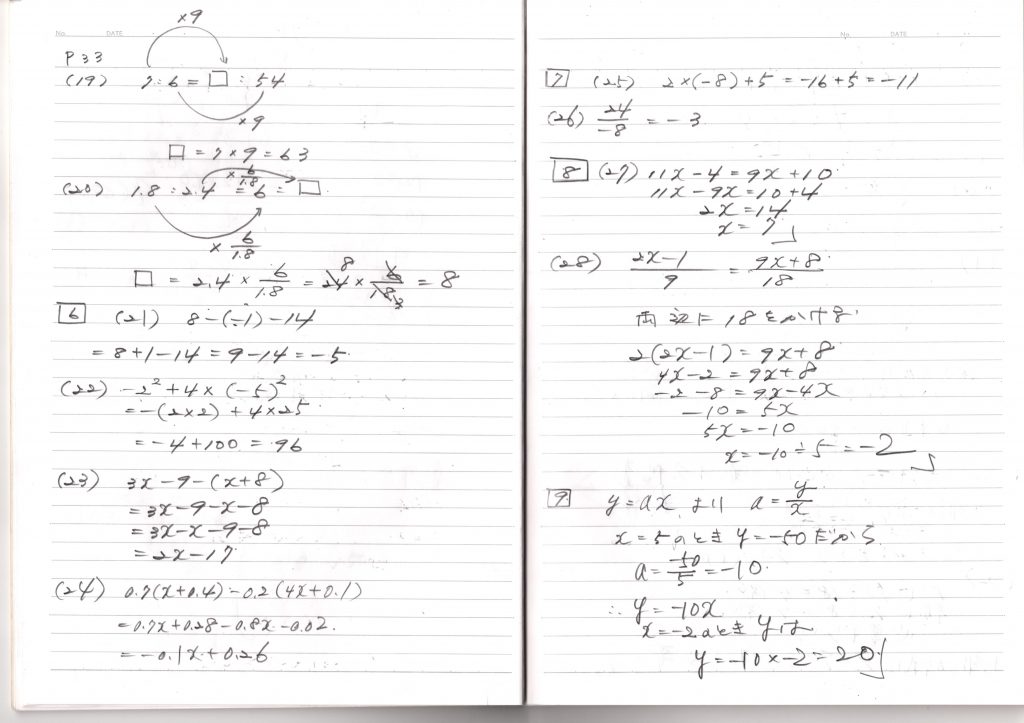 No. DATE
×9
P33
(19) 7:6=□:54
×9
□=7×9=63
×6/1.8
(20) 1.8:2.4=6:□
×6/1.8
□=2.4×6/1.8=24×6/18=8
8
3
6 (21) 8-(-1)-14
=8+1-14=9-14=-5
(22) -2²+4×(-5)²
=-(2×2)+4×25
=-4+100=96
(23) 3x-9-(x+8)
=3x-9-x-8
=3x-x-9-8
=2x-17
(24) 0.7(x+0.4)-0.2(4x+0.1)
=0.7x+0.28-0.8x-0.02.
=-0.1x+0.26
No. DATE
7 (25) 2×(-8)+5=-16+5=-11
(26) 24/-8=-3
8 (27) 11x-4=9x+10
11x-9x=10+4
2x=14
x=7
(28) 2x-1/9=9x+8/18
両辺に18をかける.
2(2x-1)=9x+8
4x-2=9x+8
-2-8=9x-4x
-10=5x
5x=-10
x=-10÷5=-2
9 y=ax より a=y/x
x=5のとき y=-50だから
a=-50/5=-10.
∴ y=-10x
x=-2のとき yは
y=-10×-2=20